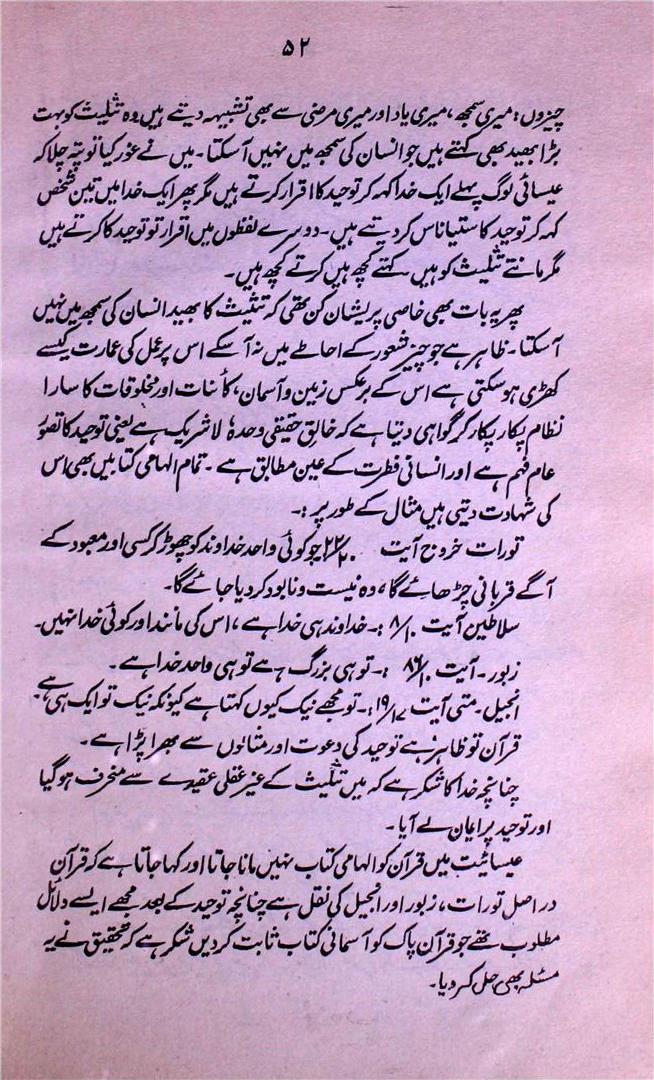 ۵۲
چیزوں: میری سمجھ، میری یاد اور میری مرضی سے بھی تشبیہہ دیتے ہیں وہ تثلیث کو بہت
بڑا بھید بھی کہتے ہیں جو انسان کی سمجھ میں نہیں آ سکتا۔ میں نے غور کیا تو پتہ چلا کہ
عیسائی لوگ پہلے ایک خدا کہہ کر توحید کا اقرار کرتے ہیں مگر پھر ایک خدا میں تین شخص
کہہ کر توحید کا ستیاناس کر دیتے ہیں۔ دوسرے لفظوں میں اقرار تو توحید کا کرتے ہیں
مگر مانتے تثلیث کو ہیں۔ کہتے کچھ ہیں کرتے کچھ ہیں۔
پھر یہ بات بھی خاصی پریشان کن تھی کہ تثیث کا بھید انسان کی سمجھ میں نہیں
آ سکتا۔ ظاہر ہے جو چیز شعور کے احاطے میں نہ آ سکے اس پر عمل کی عمارت کیسے
کھڑی ہو سکتی ہے اس کے برعکس زمین و آسمان، کائنات اور مخلوقات کا سارا
نظام پکار پکار کر گواہی دیتا ہے کہ خالق حقیقی وحدہٗ لا شریک ہے یعنی توحید کا تصور
عام فہم ہے اور انسانی فطرت کے عین مطابق ہے۔ تمام الہامی کتابیں بھی اس
کی شہادت دیتی ہیں مثال کے طور پر :۔
تورات خروج آیت ۲۲/۲۰ جو کوئی واحد خداوند کو چھوڑ کر کسی اور معبود کے
آگے قربانی چڑھائے گا، وہ نیست و نابود کر دیا جائے گا۔
سلاطین آیت ۸/۶۰ :۔ خداوند ہی خدا ہے، اس کی مانند اور کوئی خدا نہیں۔
زبور۔ آیت ۸۶/۱۰ :۔ تو ہی بزرگ ہے تو ہی واحد خدا ہے۔
انجیل۔ متی آیت ۱۹/۱۷ :۔ تو مجھے نیک کیوں کہتا ہے کیونکہ نیک تو ایک ہی ہے۔
قرآن تو ظاہر ہے توحید کی دعوت اور مثالوں سے بھرا پڑا ہے۔
چنانچہ خدا کا شکر ہے کہ میں تثلیث کے غیر عقلی عقیدے سے منحرف ہو گیا
اور توحید پر ایمان لے آیا۔
عیسائیت میں قرآن کو الہامی کتاب نہیں مانا جاتا اور کہا جاتا ہے کہ قرآن
دراصل تورات، زبور اور انجیل کی نقل ہے چنانچہ توحید کے بعد مجھے ایسے دلائل
مطلوب تھے جو قرآن پاک کو آسمانی کتاب ثابت کر دیں شکر ہے کہ تحقیق نے یہ
مسئلہ بھی حل کر دیا۔